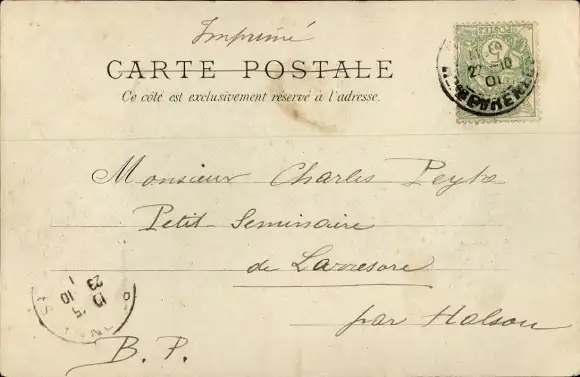 Imprimé
CARTE POSTALE
Ce côté est exclusivement réservé à l'adresse.
POSTES
5
22 -10
01
Monsieur Charles Peyta
Petit Seminaire
de Larresore
par Halsou
B. P.
23 10